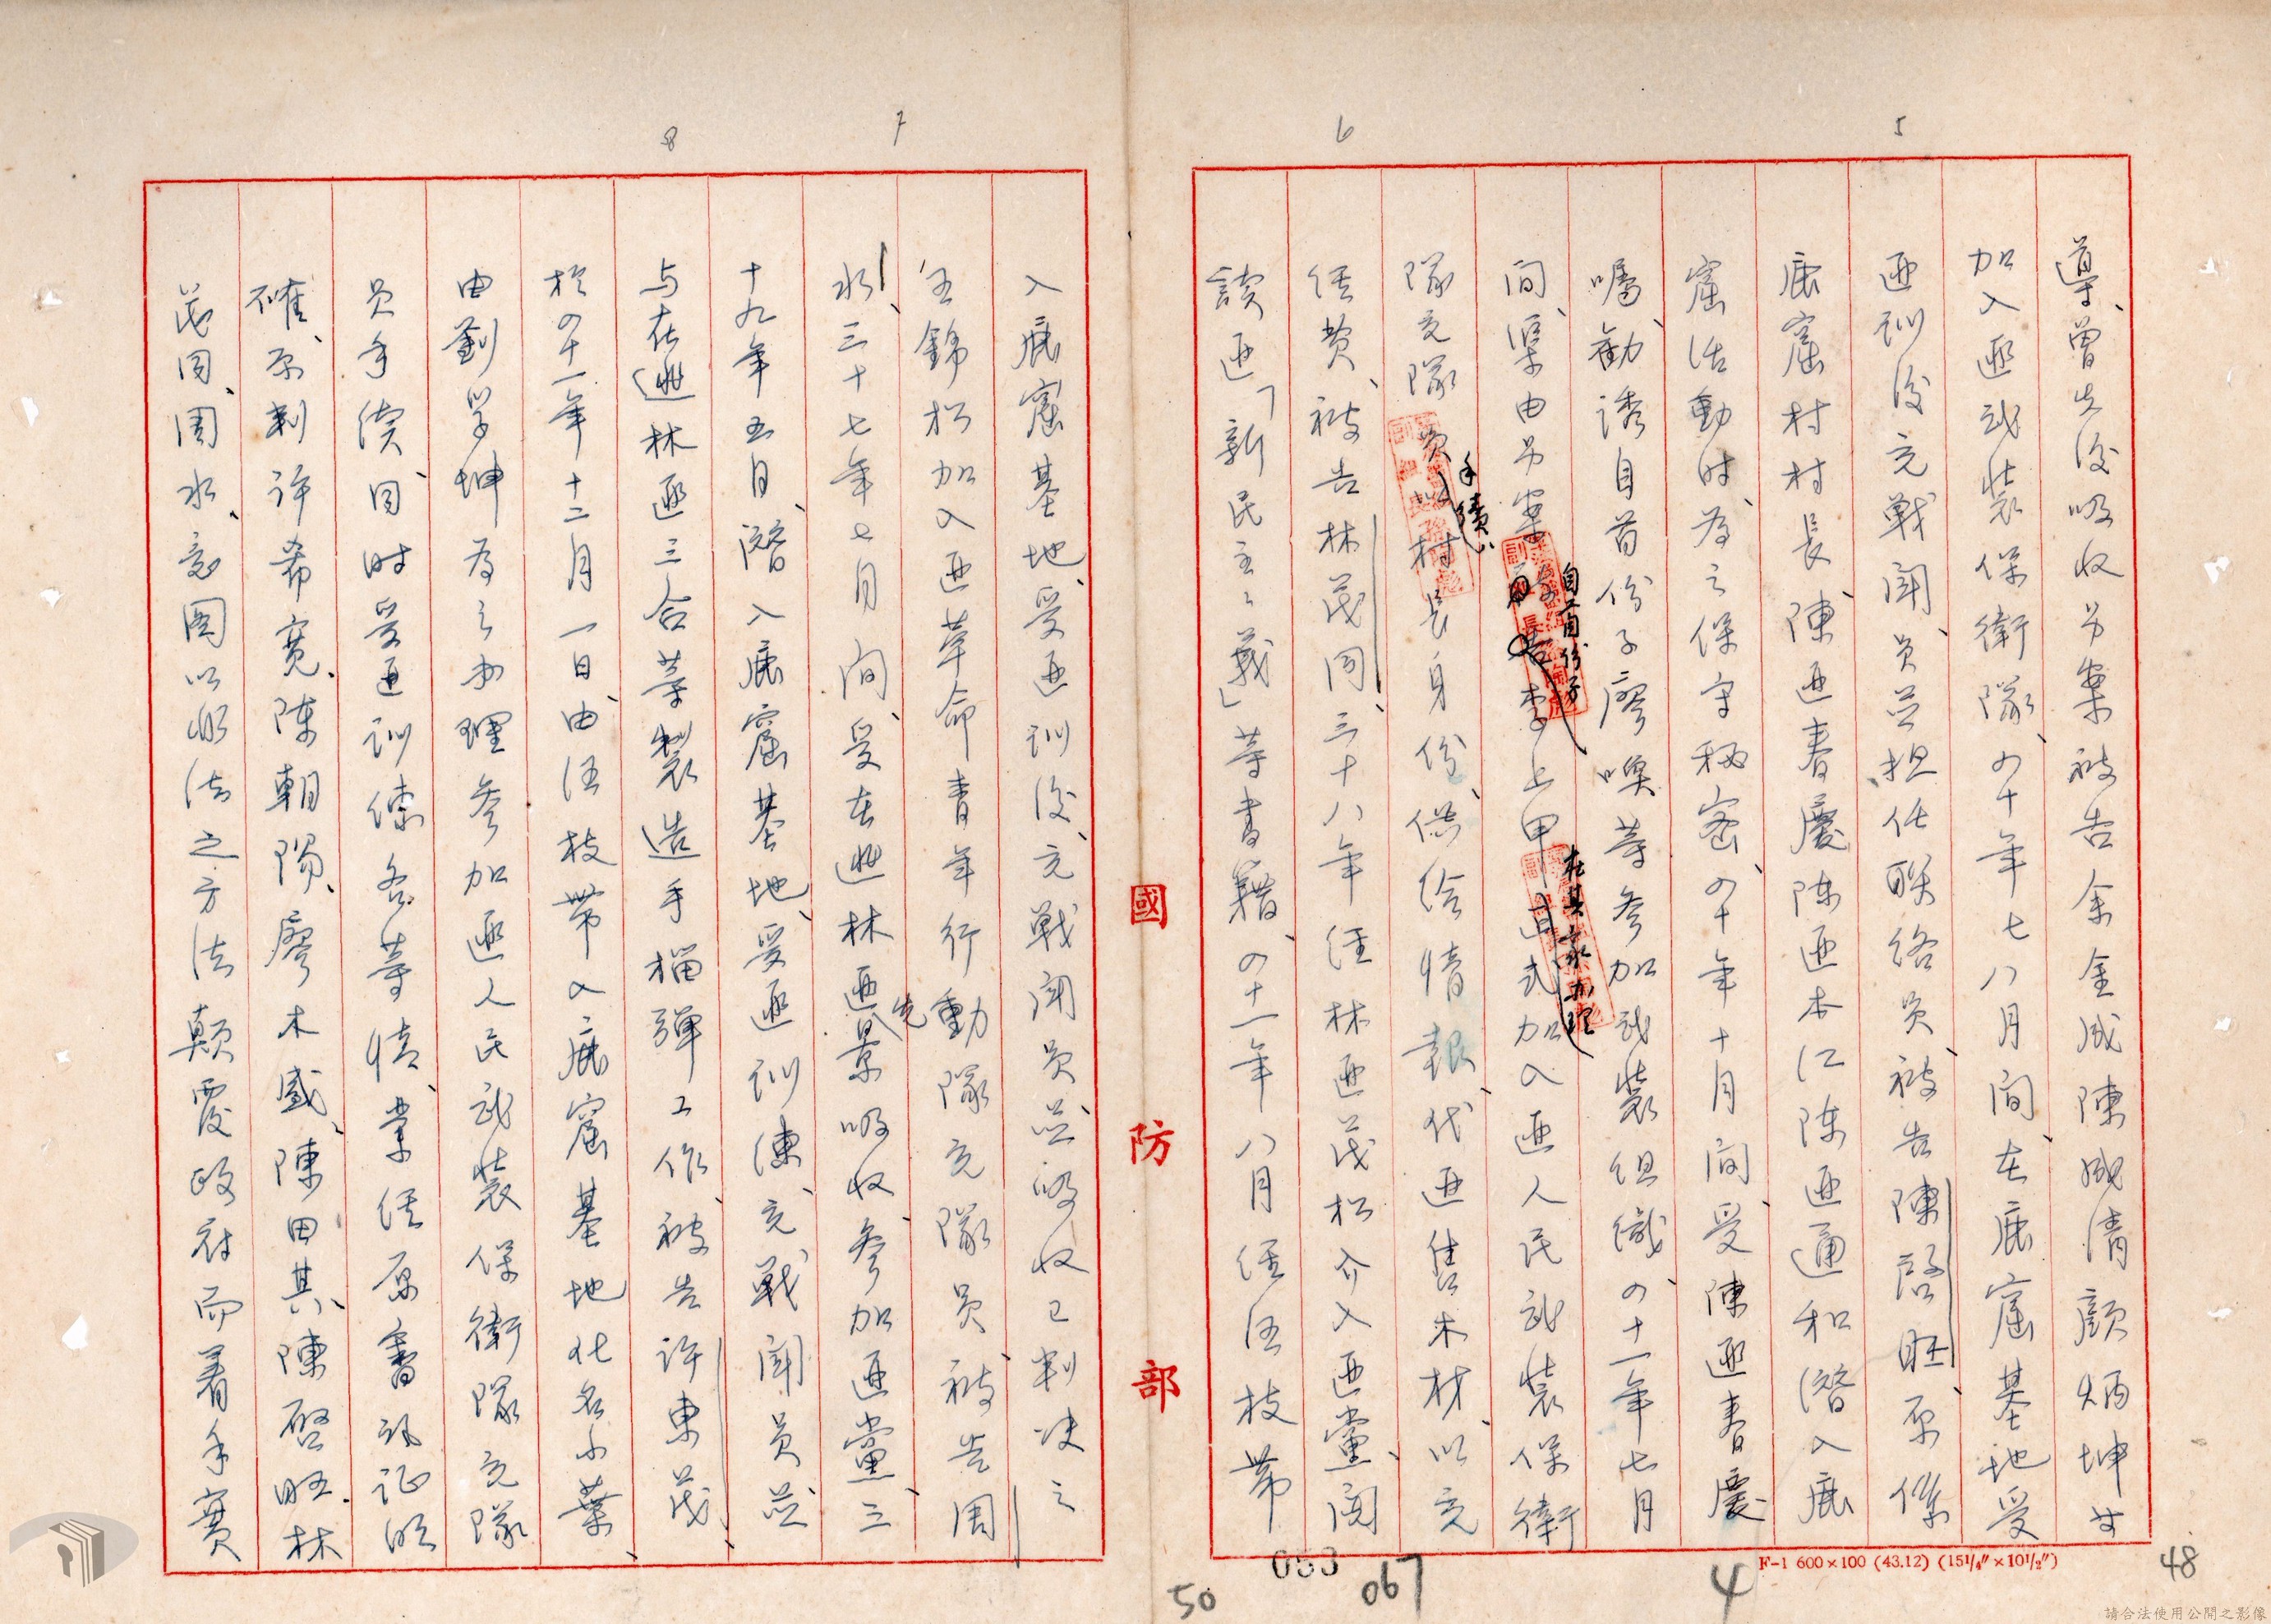 5
6
導、曾先後吸收另案被告余金成陳成清顏炳坤等
加入匪武裝保衛隊、四十年七八月間、在鹿窟基地受
匪訓後充戰鬪員並担任联络員、被告陳啓旺原係
鹿窟村村長、陳匪春慶陈匪本江陈匪通和潛入鹿
窟活動时、為之保守秘密、四十年十月間、受陳匪春慶
囑、勸誘自首份子廖喚等参加武裝组織、四十一年七月
間、渠由另案自首份子李上甲在其家办理加入匪人民武装保衛
隊充隊員手續、以村長身份、供给情報、代匪售木材、以充
经费、被告林茂同、三十八年经林匪茂松介入匪黨、閱
读匪「新民主主義」等書籍、四十一年八月经汪枝带
國防部
F-1 600×100 (43.12) (15¼″×10½″)
48
4
067
053
50
7
8
入鹿窟基地、受匪训後、充戰鬪員並吸收已判决之
王錦松加入匪革命青年行動隊充隊員、被告周
水、三十七年七月間、受在逃林匪先景吸收、参加匪黨、三
十九年五月、潛入鹿窟基地、受匪训練、充戰鬪員並
与在逃林匪三合等製造手榴彈工作、被告许東茂、
於四十一年十二月一日、由汪枝带入鹿窟基地化名小葉、
由劉学坤為之办理参加匪人民武裝保衛隊充隊
員手續、同时受匪训練各等情、業经原審訊証明
確、原判许希寬、陳朝陽、廖木盛、陳田其、陳啓旺、林
茂同、周水、意圖以非法之方法顛覆政府而着手實
請合法使用公開之影像